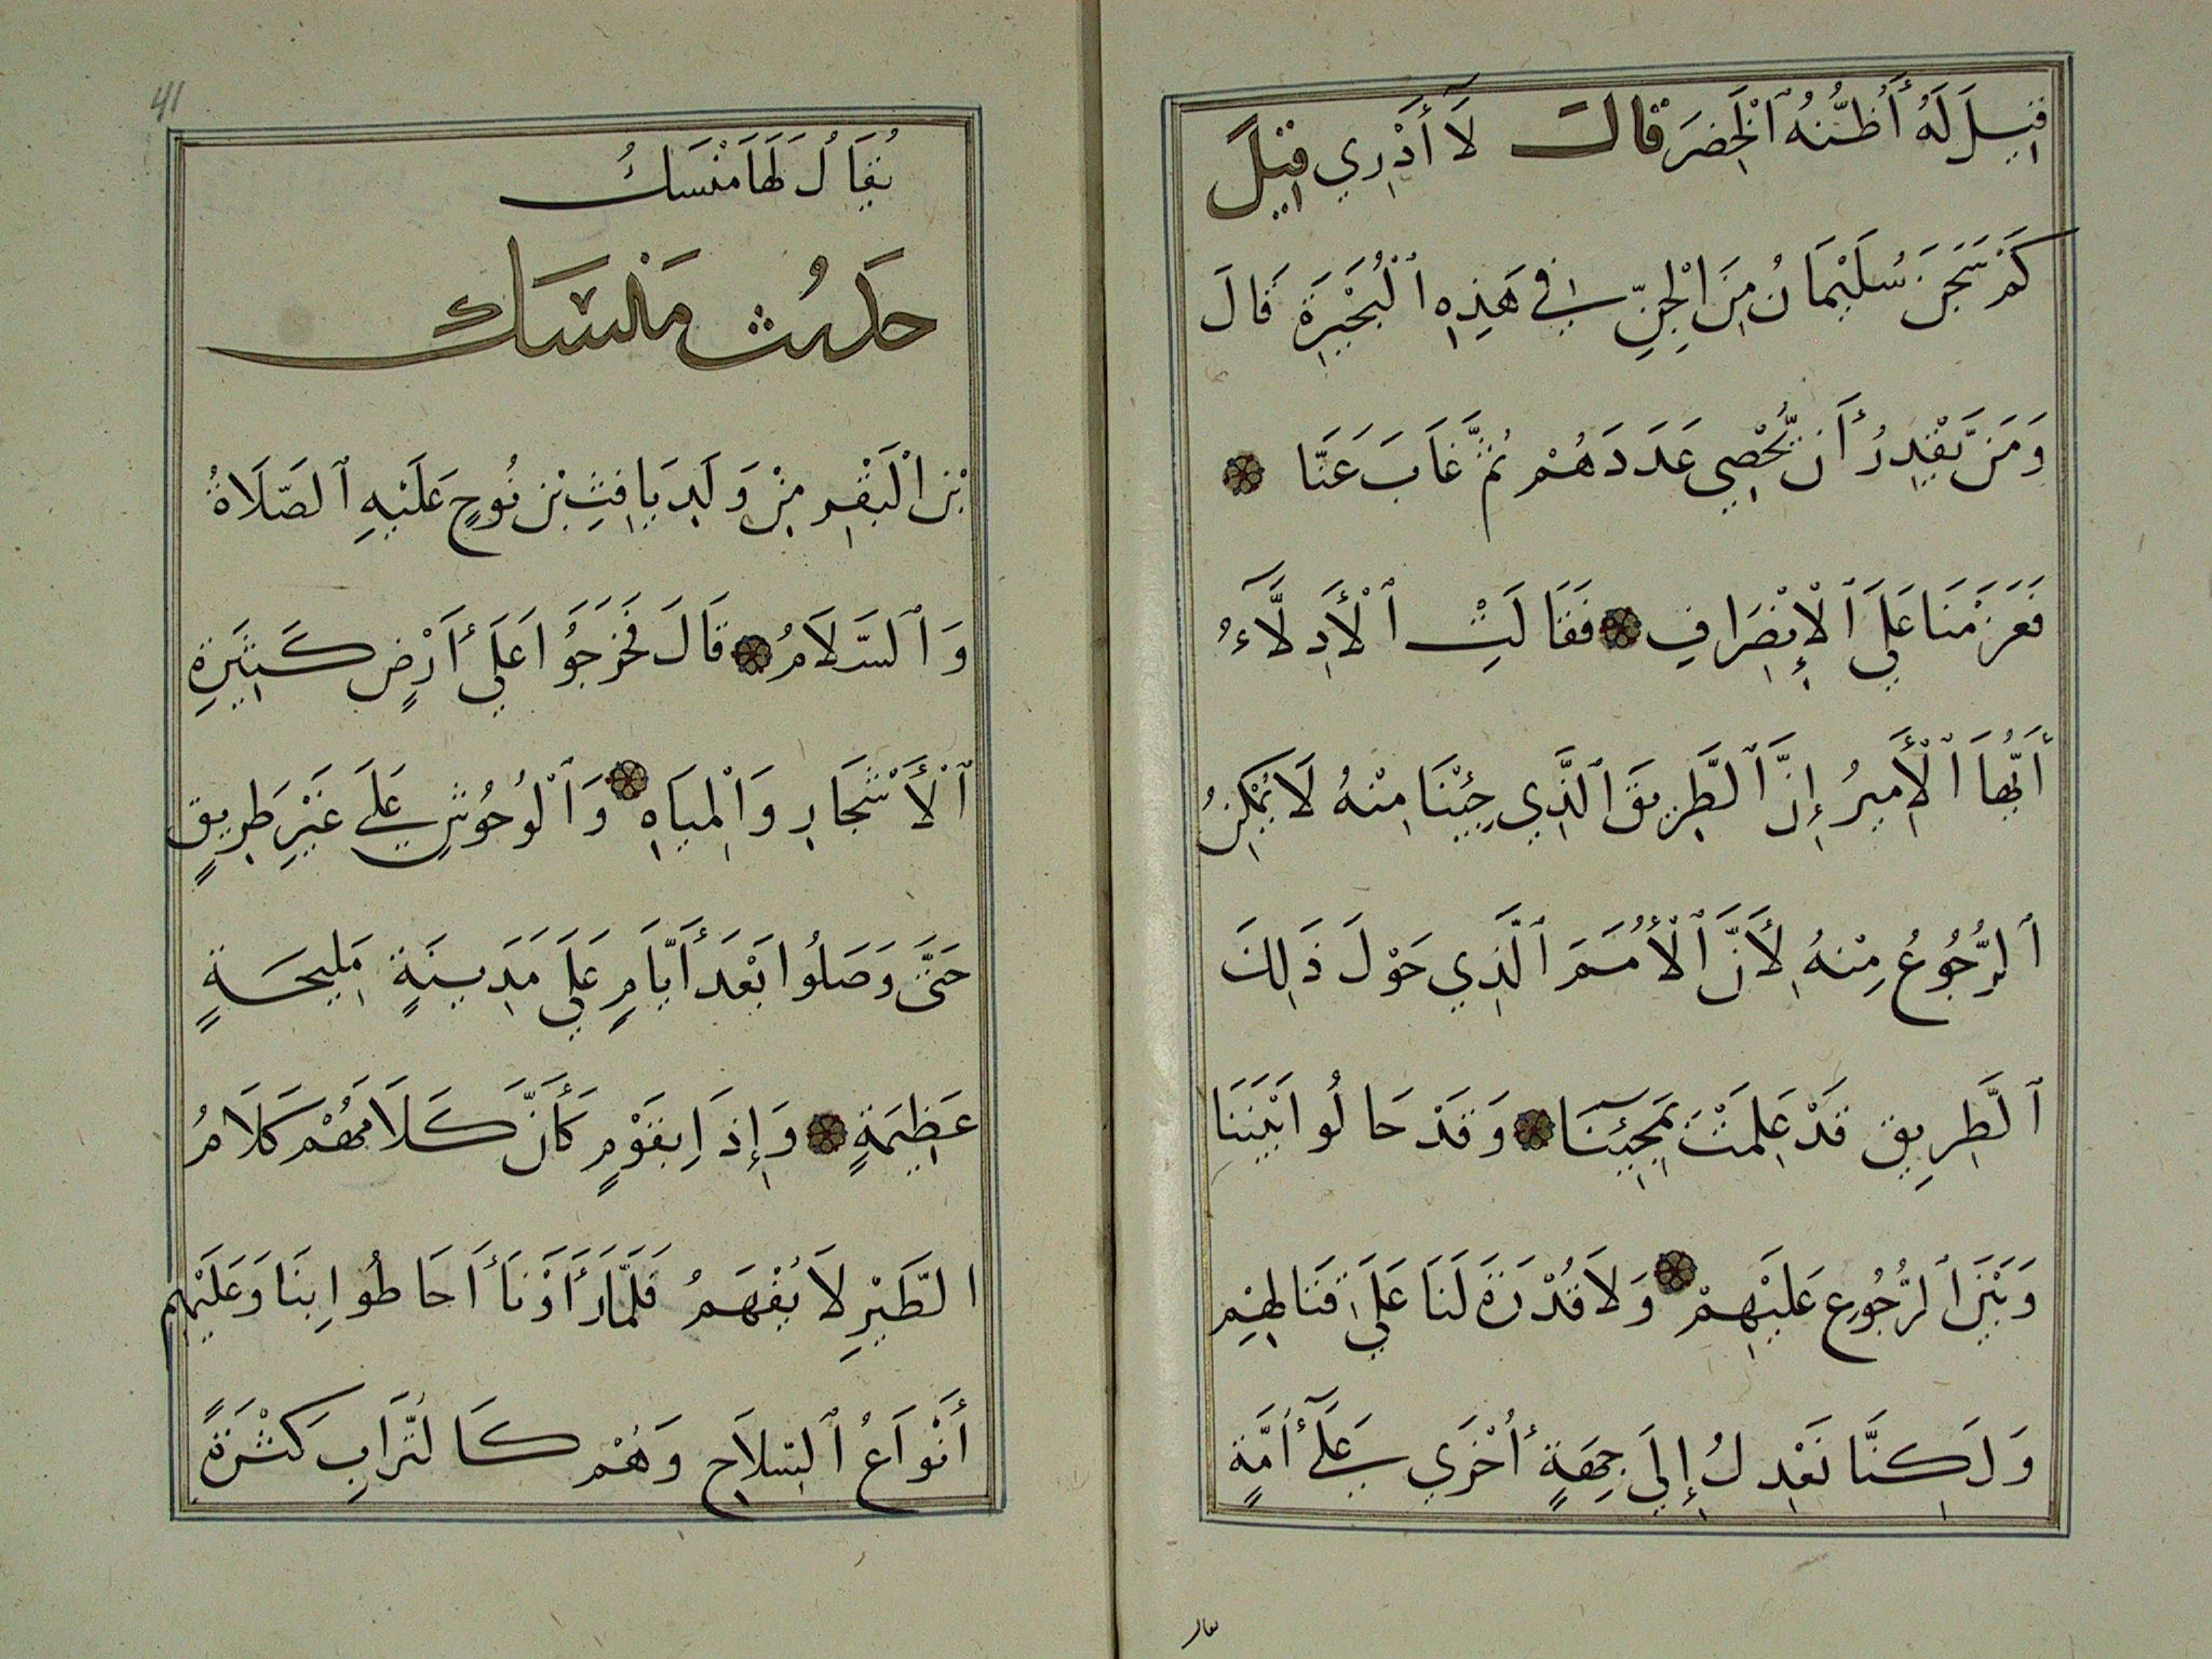 قِيلَ لَهُ أَظُنُّهُ ٱلْخَضِرَ قَالَ لَآ أَدْرِي قِيلَ
كَمْ سَجَنَ سُلَيْمَانُ مِنَ الْجِنِّ فِي هَذِهِ ٱلْبُحَيْرَةِ قَالَ
وَمَن يَّقْدِرُ أَن يُّحْصِي عَدَدَهُمْ ثُمَّ غَابَ عَنَّا
فَعَزَمْنَا عَلَى ٱلْإِنْصِرَافِ فَقَالَتِ ٱلْأَدِلَّآءُ
أَيُّهَا ٱلْأَمِيرُ إِنَّ ٱلطَّرِيقَ ٱلَّذِي جِئْنَا مِنْهُ لَا يُمْكِنُ
ٱلرُّجُوعُ مِنْهُ لِأَنَّ ٱلْأُمَمَ ٱلَّذِي حَوْلَ ذَلِكَ
ٱلطَّرِيقِ قَدْ عَلِمَتْ بِمَجِيئِنَا وَقَدْ حَالُوا بَيْنَنَا
وَبَيْنَ ٱلرُّجُوعِ عَلَيْهِمْ وَلَا قُدْرَةَ لَنَا عَلَى قِتَالِهِمْ
وَلَكِنَّا نَعْدِلُ إِلَى جِهَةٍ أُخْرَى عَلَىٓ أُمَّةٍ
يقال
41
يُقَالُ لَهَا مَنْسَكُ
حَدِيثُ مَنْسَك
بْنِ الْبَقَرِ مِنْ وَلَدِ يَافِثِ بْنِ نُوحٍ عَلَيْهِ ٱلصَّلَاةُ
وَٱلسَّلَامُ قَالَ فَخَرَجُوا عَلَى أَرْضٍ كَثِيرَةِ
ٱلْأَشْجَارِ وَالْمِيَاهِ وَٱلْوُحُوشِ عَلَى غَيْرِ طَرِيقٍ
حَتَّى وَصَلُوا بَعْدَ أَيَّامٍ عَلَى مَدِينَةٍ مَلِيحَةٍ
عَظِيمَةٍ وَإِذَا بِقَوْمٍ كَأَنَّ كَلَامَهُمْ كَلَامُ
الطَّيْرِ لَا يُفْهَمُ فَلَمَّا رَأَوْنَا أَحَاطُوا بِنَا وَعَلَيْهِم
أَنْوَاعُ ٱلسِّلَاحِ وَهُمْ كَالتُّرَابِ كَثْرَةً